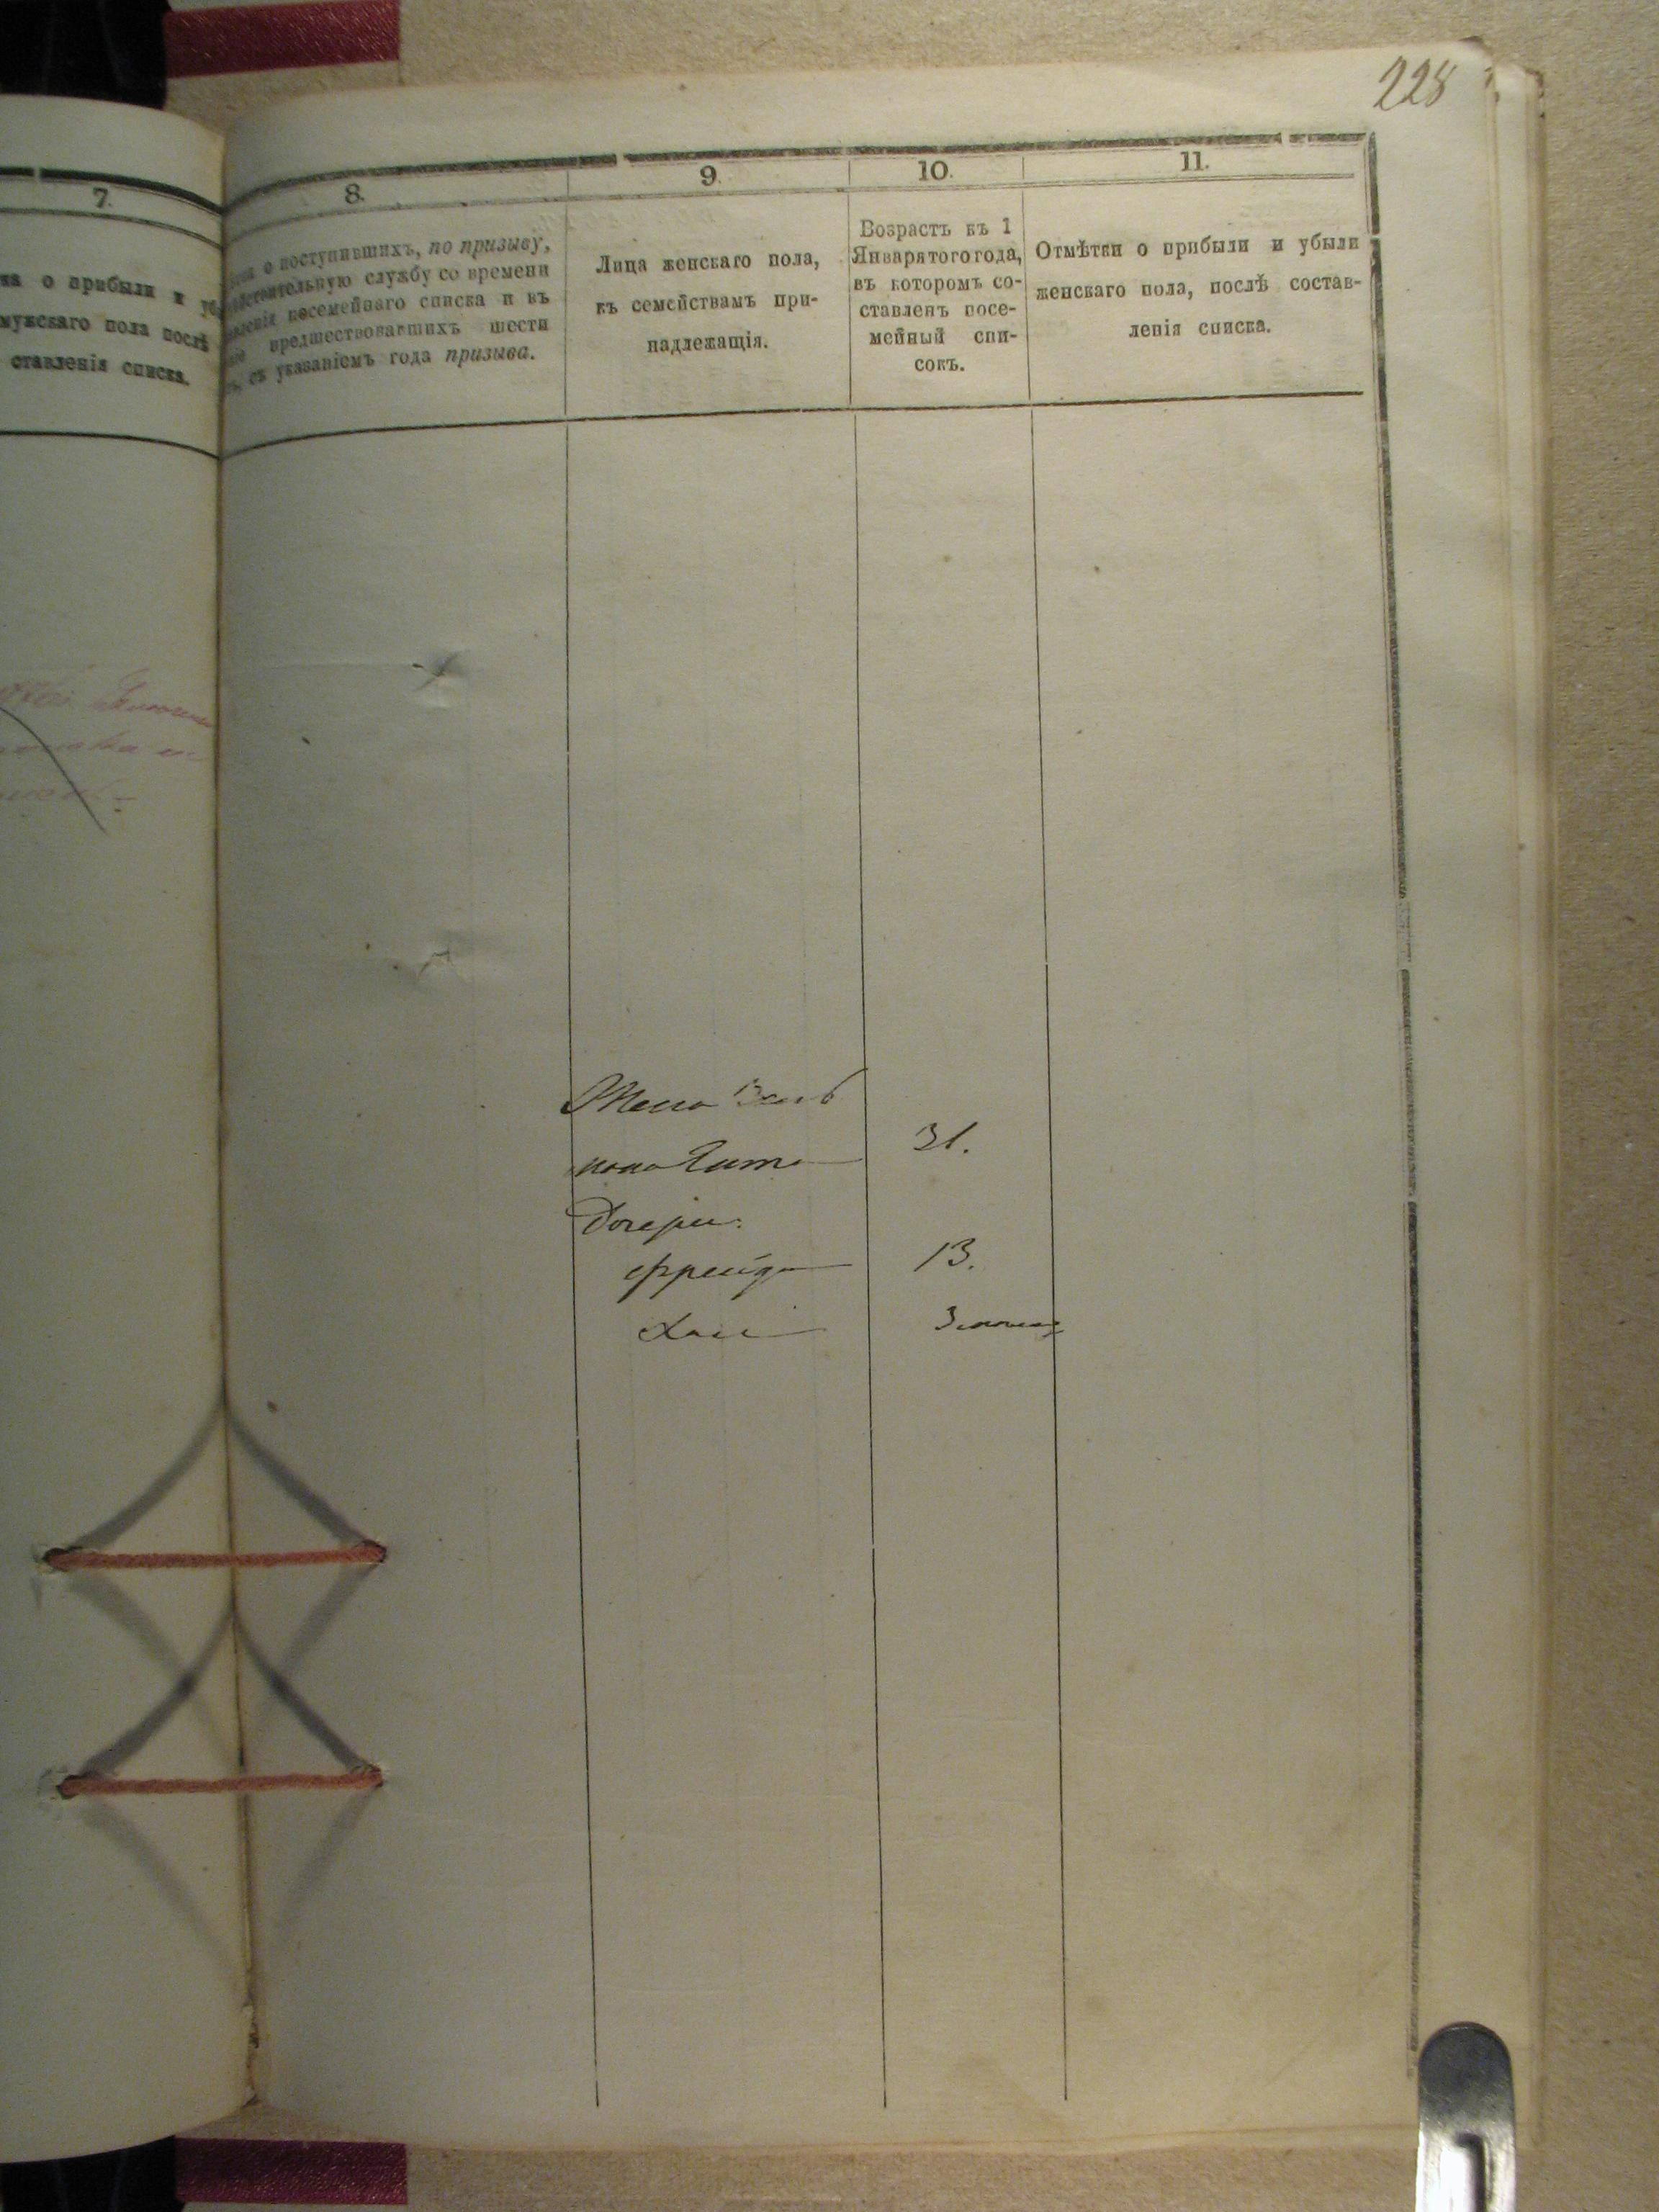 228
7.
о прибыли и
мужскаго пола послѣ
ставленія списка.
8.
о поступившихъ, по призыву,
службу со времени
посемейнаго списка и въ
предшествовавшихъ шести
съ указаніемъ года призыва.
9.
Лица женскаго пола,
къ семействамъ при-
надлежащія.
10.
Возрастъ къ 1
Января того года,
въ которомъ со-
ставленъ посе-
мейный спи-
сокъ.
11.
Отмѣтки о прибыли и убыли
женскаго пола, послѣ состав-
ленія списка.
Жена
31.
Дочери:
Фрейда 13.
Хая